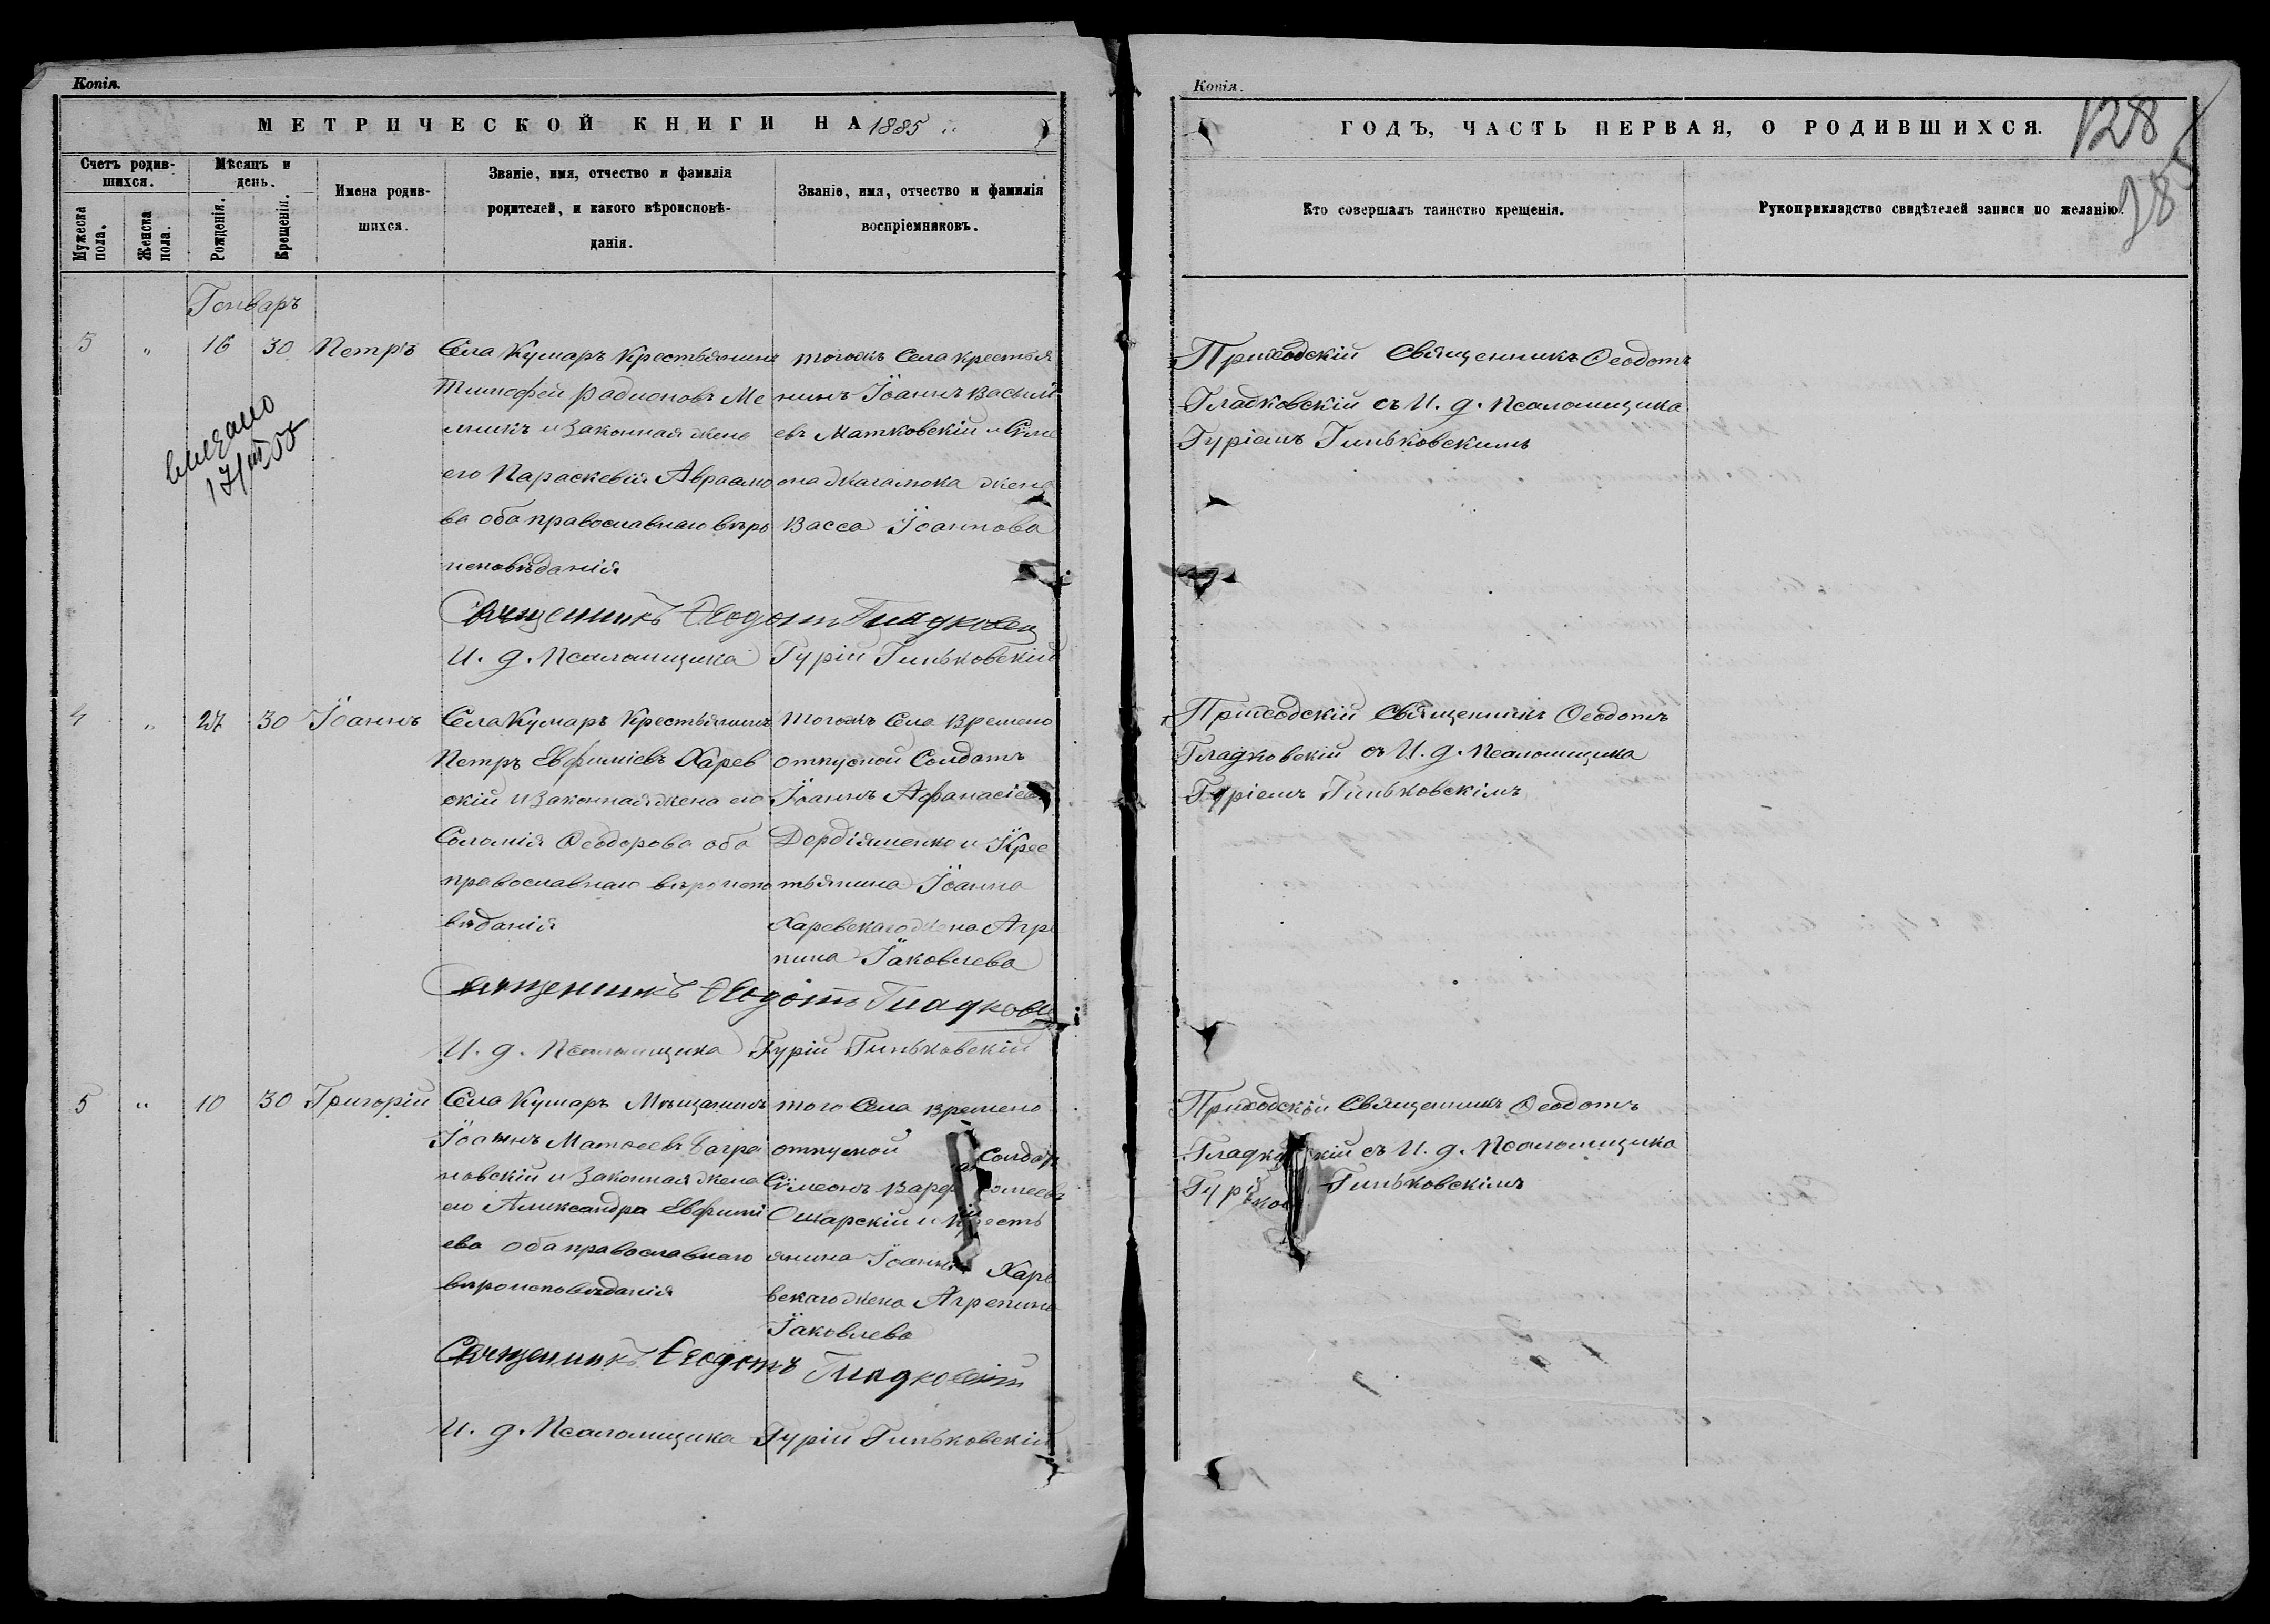 Копія.
МЕТРИЧЕСКОЙ КНИГИ НА 1885
Счетъ родив-
шихся.
Мужеска
пола.
Женска
пола.
Мѣсяцъ и
день.
Рожденія.
Крещенія.
Имена родив-
шихся.
Званіе, имя, отчество и фамилія
родителей, и какого вѣроисповѣ-
данія.
Званіе, имя, отчество и фамилія
воспріемниковъ.
Генваръ
3 " 16 30 Петръ
Села Кумаръ Крестьянинъ
Тимофей Радионовъ Ме
льникъ и Законная жена
его Параскевія Авраамо
ва оба православнаго вѣро
исповѣданія
тогожъ Села крестья
нинъ Іоаннъ Васили
евъ Матковскій и
жена
Васса Іоаннова
Священникъ Ѳеодотъ Гладковскі
И. д. Псаломщика Гурій Гиньковскій
4 " 27 30 Іоаннъ
Села Кумаръ Крестьянинъ
Петръ Евфиміевъ Харев
скій и Законная жена его
Соломія Ѳеодорова оба
православнаго вѣроиспо
вѣданія
тогожъ Села Времено
отпускной Солдатъ
Іоаннъ Афанасіевъ
и Крес
тьянина Іоанна
Харевскаго жена Агри
пина Іаковлева
Священникъ Ѳеодотъ Гладковскі
И. д. Псаломщика Гурій Гиньковскій
5 " 10 30 Григорій
Села Кумаръ Мѣщанинъ
Іоаннъ Матѳеевъ Багри
новскій и Законная жена
его Александра Евфими
ева оба православнаго
вѣроисповѣданія
того Села Времено
отпускной Солдат
Сѵмеонъ
Ошарскій и Кресть
янина Іоанна Харе
вскаго жена Агрепина
Іаковлева
Священникъ Ѳеодотъ Гладковскій
И. д. Псаломщика Гурій Гиньковскій
Копія.
ГОДЪ, ЧАСТЬ ПЕРВАЯ, О РОДИВШИХСЯ.
128
Кто совершалъ таинство крещенія.
Рукоприкладство свидѣтелей записи по желанію.
Приходскій Священникъ Ѳеодотъ
Гладковскій съ И. д. Псаломщика
Гуріемъ Гиньковскимъ
Приходскій Священникъ Ѳеодотъ
Гладковскій съ И. д. Псаломщика
Гуріемъ Гиньковскімъ
Приходскій Священникъ Ѳеодотъ
съ И. д. Псаломщика
Гиньковскімъ